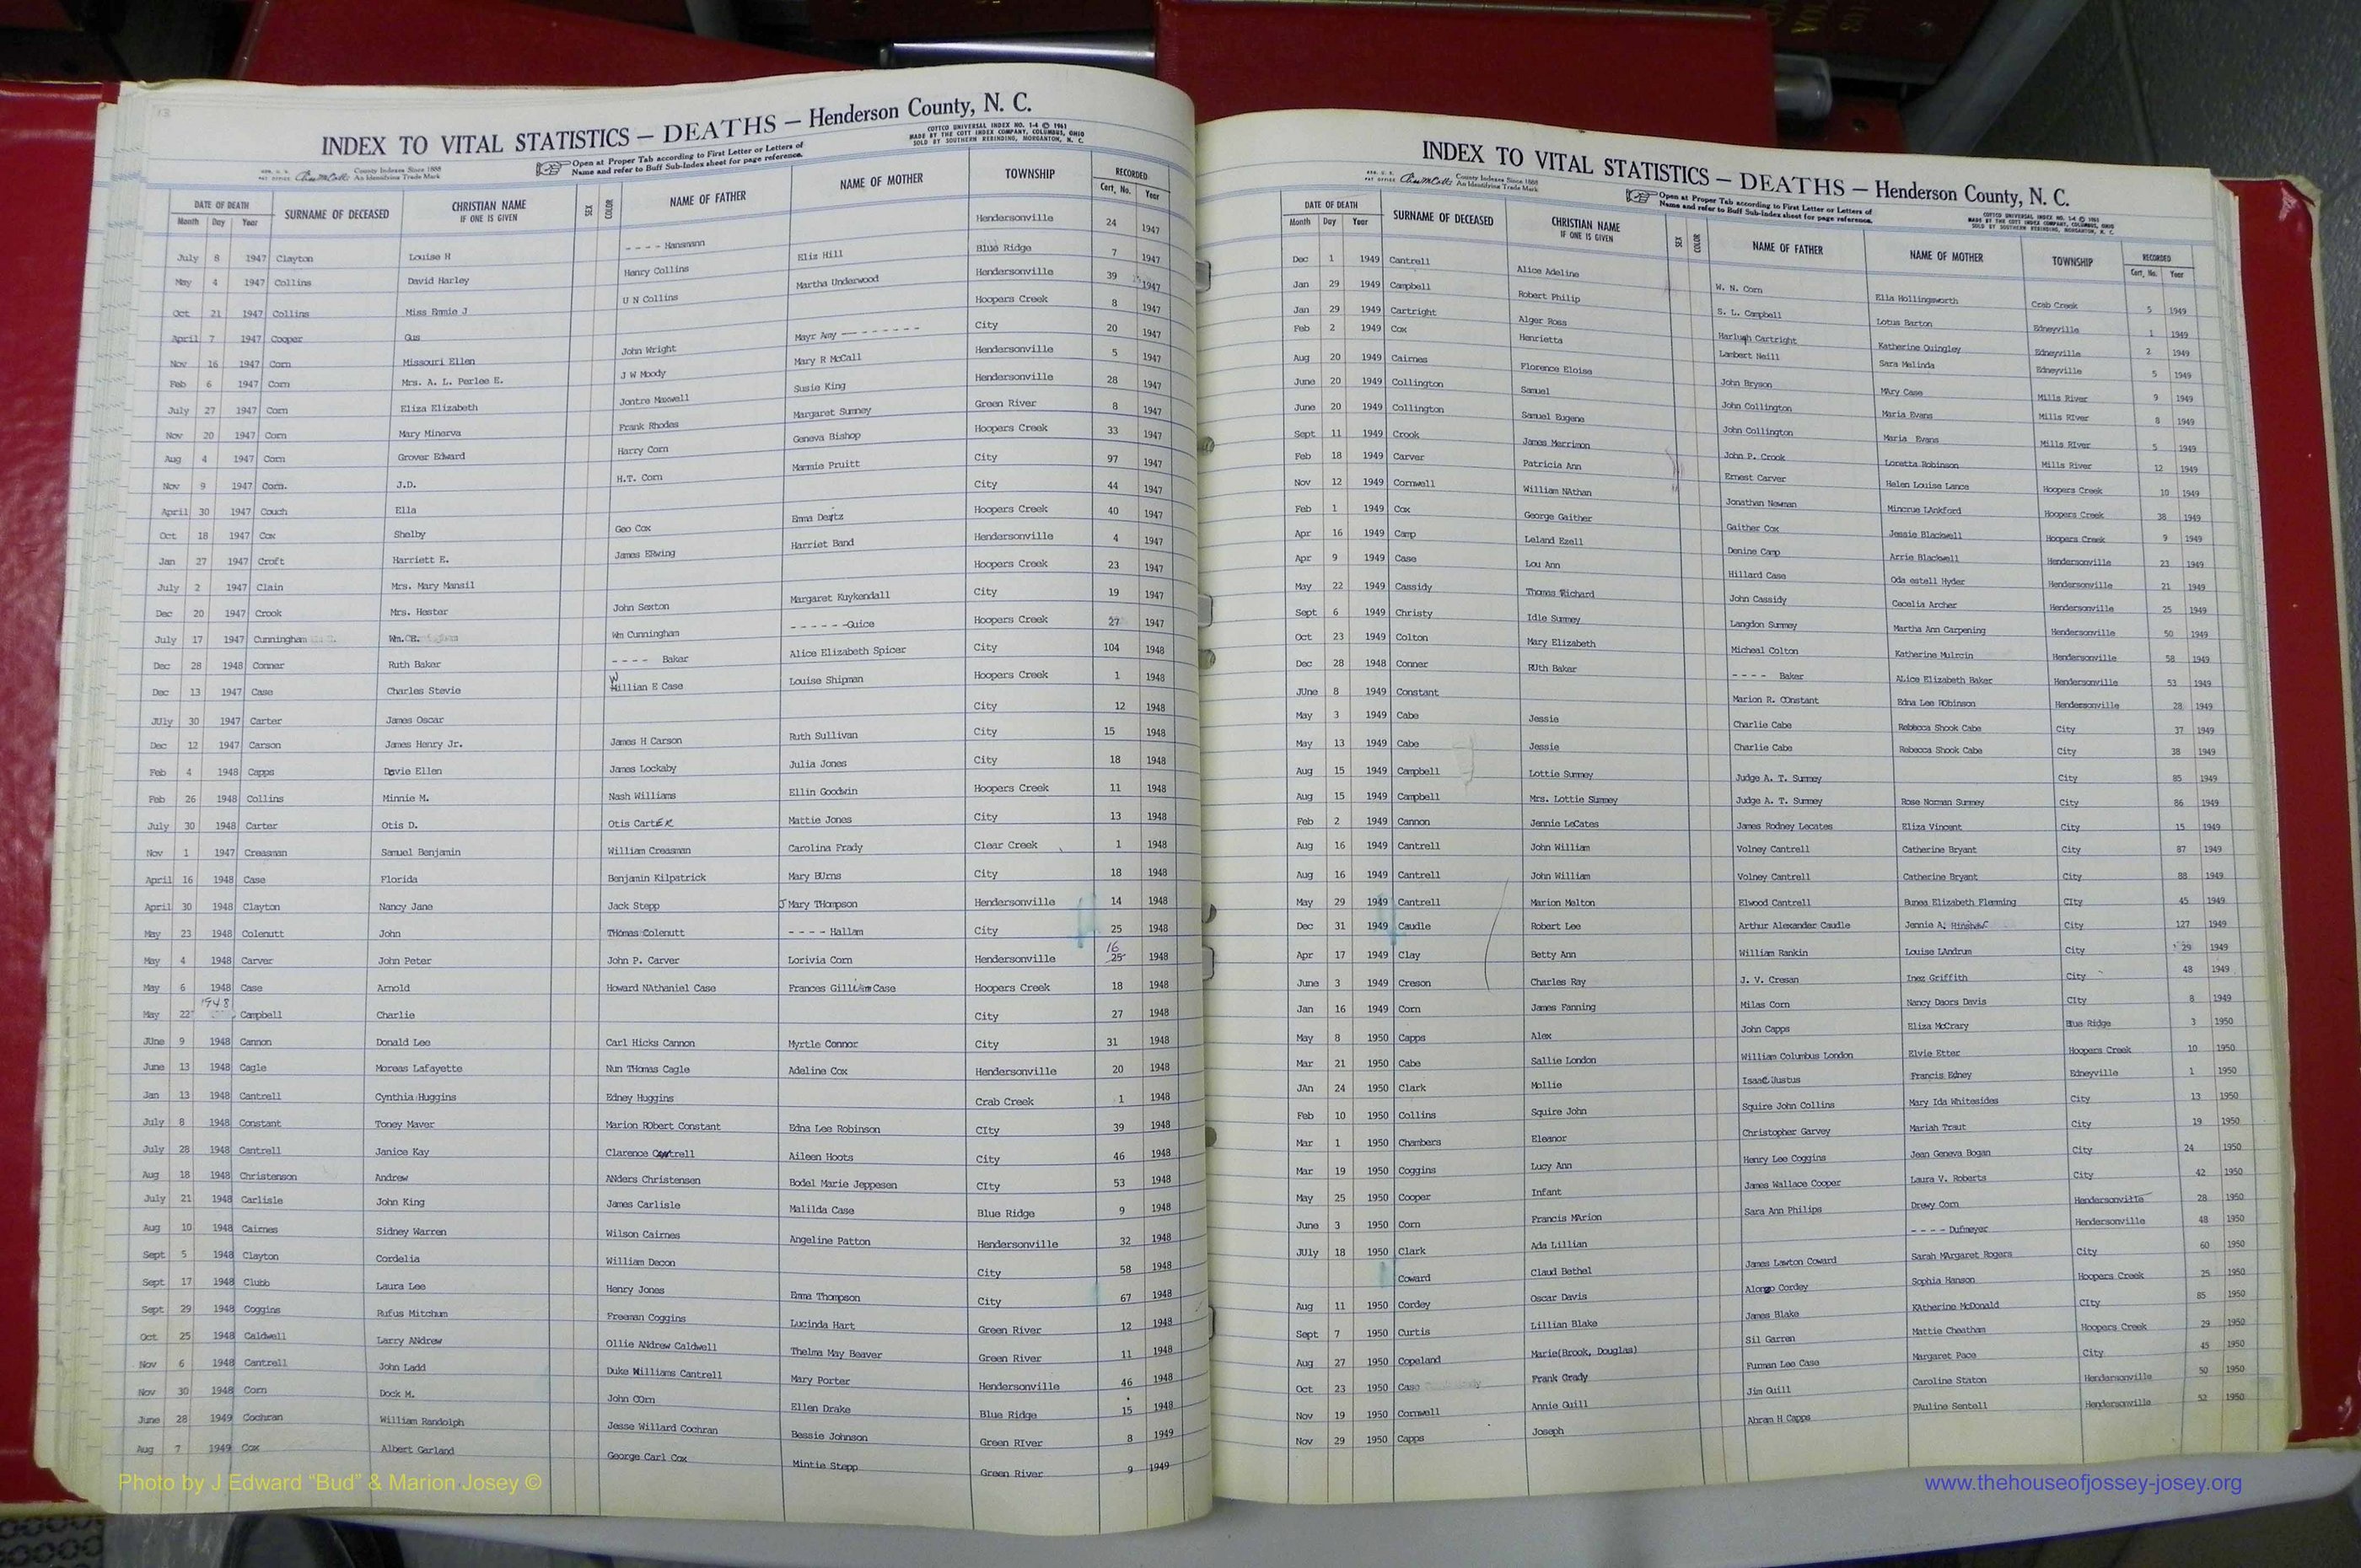 INDEX TO VITAL STATISTICS — DEATHS — Henderson County, N. C.
COTTCO UNIVERSAL INDEX NO. 1-4 © 1961
MADE BY THE COTT INDEX COMPANY, COLUMBUS, OHIO
SOLD BY SOUTHERN REBINDING, MORGANTON, N. C.
County Indexes Since 1888
An Identifying Trade Mark
Open at Proper Tab according to First Letter or Letters of
Name and refer to Buff Sub-Index sheet for page reference.
DATE OF DEATH SURNAME OF DECEASED CHRISTIAN NAME IF ONE IS GIVEN SEX COLOR NAME OF FATHER NAME OF MOTHER TOWNSHIP RECORDED
Month Day Year Cert. No. Year
July 8 1947 Clayton Louise H - - - - Hansmann Eliz Hill Hendersonville 24 1947
May 4 1947 Collins David Harley Henry Collins Martha Underwood Blue Ridge 7 1947
Oct 21 1947 Collins Miss Emmie J U N Collins Hendersonville 39 1947
April 7 1947 Cooper Gus Mayr Amy - - - - - - - Hoopers Creek 8 1947
Nov 16 1947 Corn Missouri Ellen John Wright Mary R McCall City 20 1947
Feb 6 1947 Corn Mrs. A. L. Perlee E. J W Moody Susie King Hendersonville 5 1947
July 27 1947 Corn Eliza Elizabeth Jontre Maxwell Margaret Sumney Hendersonville 28 1947
Nov 20 1947 Corn Mary Minerva Frank Rhodes Geneva Bishop Green River 8 1947
Aug 4 1947 Corn Grover Edward Harry Corn Mammie Pruitt Hoopers Creek 33 1947
Nov 9 1947 Corn. J.D. H.T. Corn City 97 1947
April 30 1947 Couch Ella City 44 1947
Oct 18 1947 Cox Shelby Geo Cox Emma Hoopers Creek 40 1947
Jan 27 1947 Croft Harriett E. James ERwing Harriet Band Hendersonville 4 1947
July 2 1947 Clain Mrs. Mary Mansil Hoopers Creek 23 1947
Dec 20 1947 Crook Mrs. Hester John Sexton Margaret Kuykendall City 19 1947
July 17 1947 Cunningham Wm.CE. Wm Cunningham - - - - - -Guice Hoopers Creek 27 1947
Dec 28 1948 Conner Ruth Baker - - - - Baker Alice Elizabeth Spicer City 104 1948
Dec 13 1947 Case Charles Stevie Willian E Case Louise Shipman Hoopers Creek 1 1948
JUly 30 1947 Carter James Oscar City 12 1948
Dec 12 1947 Carson James Henry Jr. James H Carson Ruth Sullivan City 15 1948
Feb 4 1948 Capps Dovie Ellen James Lockaby Julia Jones City 18 1948
Feb 26 1948 Collins Minnie M. Nash Williams Ellin Goodwin Hoopers Creek 11 1948
July 30 1948 Carter Otis D. Otis CartER Mattie Jones City 13 1948
Nov 1 1947 Creasman Samuel Benjamin William Creasman Carolina Frady Clear Creek 1 1948
April 16 1948 Case Florida Benjamin Kilpatrick Mary BUrns City 18 1948
April 30 1948 Clayton Nancy Jane Jack Stepp J Mary THompson Hendersonville 14 1948
May 23 1948 Colenutt John THomas Colenutt - - - - Hallam City 25 1948
May 4 1948 Carver John Peter John P. Carver Lorivia Corn Hendersonville 16 25 1948
May 6 1948 Case Arnold Howard NAthaniel Case Frances Gilliam Case Hoopers Creek 18 1948
May 22 1948 Campbell Charlie City 27 1948
JUne 9 1948 Cannon Donald Lee Carl Hicks Cannon Myrtle Connor City 31 1948
June 13 1948 Cagle Moreas Lafayette Nun THomas Cagle Adeline Cox Hendersonville 20 1948
Jan 13 1948 Cantrell Cynthia Huggins Edney Huggins Crab Creek 1 1948
July 8 1948 Constant Toney Maver Marion RObert Constant Edna Lee Robinson CIty 39 1948
July 28 1948 Cantrell Janice Kay Clarence Cantrell Aileen Hoots City 46 1948
Aug 18 1948 Christenson Andrew ANders Christensen Bodel Marie Jeppesen CIty 53 1948
July 21 1948 Carlisle John King James Carlisle Malilda Case Blue Ridge 9 1948
Aug 10 1948 Cairnes Sidney Warren Wilson Cairnes Angeline Patton Hendersonville 32 1948
Sept 5 1948 Clayton Cordelia William Dacon City 58 1948
Sept 17 1948 Clubb Laura Lee Henry Jones Emma Thompson City 67 1948
Sept 29 1948 Coggins Rufus Mitchum Freeman Coggins Lucinda Hart Green River 12 1948
Oct 25 1948 Caldwell Larry ANdrew Ollie ANdrew Caldwell Thelma May Beaver Green River 11 1948
Nov 6 1948 Cantrell John Ladd Duke Williams Cantrell Mary Porter Hendersonville 46 1948
Nov 30 1948 Corn Dock M. John COrn Ellen Drake Blue Ridge 15 1948
June 28 1949 Cochran William Randolph Jesse Willard Cochran Bessie Johnson Green RIver 8 1949
Aug 7 1949 Cox Albert Garland George Carl Cox Mintie Stepp Green River 9 1949
Photo by J Edward “Bud” & Marion Josey ©
INDEX TO VITAL STATISTICS — DEATHS — Henderson County, N. C.
County Indexes Since 1888
An Identifying Trade Mark
Open at Proper Tab according to First Letter or Letters of
Name and refer to Buff Sub-Index sheet for page reference.
COTTCO UNIVERSAL INDEX NO. 1-4 © 1961
MADE BY THE COTT INDEX COMPANY, COLUMBUS, OHIO
SOLD BY SOUTHERN REBINDING, MORGANTON, N. C.
DATE OF DEATH SURNAME OF DECEASED CHRISTIAN NAME IF ONE IS GIVEN SEX COLOR NAME OF FATHER NAME OF MOTHER TOWNSHIP RECORDED
Month Day Year Cert. No. Year
Dec 1 1949 Cantrell Alice Adeline W. N. Corn Ella Hollingsworth Crab Creek 5 1949
Jan 29 1949 Campbell Robert Philip S. L. Campbell Lotus Barton Edneyville 1 1949
Jan 29 1949 Cartright Alger Ross Harlugh Cartright Katherine Quingley Edneyville 2 1949
Feb 2 1949 Cox Henrietta Lambert Neill Sara Malinda Edneyville 5 1949
Aug 20 1949 Cairnes Florence Eloise John Bryson MAry Case Mills River 9 1949
June 20 1949 Collington Samuel John Collington Maria Evans Mills RIver 8 1949
June 20 1949 Collington Samuel Eugene John Collington Maria Evans Mills RIver 5 1949
Sept 11 1949 Crook James Merrimon John P. Crook Loretta Robinson Mills River 12 1949
Feb 18 1949 Carver Patricia Ann Ernest Carver Helen Louise Lance Hoopers Creek 10 1949
Nov 12 1949 Cornwell William NAthan Jonathan Newman Mincrue LAnkford Hoopers Creek 38 1949
Feb 1 1949 Cox George Gaither Gaither Cox Jessie Blackwell Hoopers Creek 9 1949
Apr 16 1949 Camp Leland Ezell Denine Camp Arrie Blackwell Hendersonville 23 1949
Apr 9 1949 Case Lou Ann Hillard Case Oda estell Hyder Hendersonville 21 1949
May 22 1949 Cassidy Thomas Richard John Cassidy Cecelia Archer Hendersonville 25 1949
Sept 6 1949 Christy Idle Sumney Langdon Sumney Martha Ann Carpening Hendersonville 50 1949
Oct 23 1949 Colton Mary Elizabeth Micheal Colton Katherine Mulroin Hendersonville 58 1949
Dec 28 1948 Conner RUth Baker - - - - Baker ALice Elizabeth Baker Hendersonville 53 1949
JUne 8 1949 Constant Marion R. COnstant Edna Lee RObinson Hendersonville 28 1949
May 3 1949 Cabe Jessie Charlie Cabe Rebbecca Shook Cabe City 37 1949
May 13 1949 Cabe Jessie Charlie Cabe Rebecca Shook Cabe City 38 1949
Aug 15 1949 Campbell Lottie Sumney Judge A. T. Sumney City 85 1949
Aug 15 1949 Campbell Mrs. Lottie Sumney Judge A. T. Sumney Rose Norman Sumney City 86 1949
Feb 2 1949 Cannon Jennie LeCates James Rodney Lecates Eliza Vincent City 15 1949
Aug 16 1949 Cantrell John William Volney Cantrell Catherine Bryant City 87 1949
Aug 16 1949 Cantrell John William Volney Cantrell Catherine Bryant City 88 1949
May 29 1949 Cantrell Marion Melton Elwood Cantrell Bunea Elizabeth Flemming CIty 45 1949
Dec 31 1949 Caudle Robert Lee Arthur Alexander Caudle Jennie A. Hinshaw City 127 1949
Apr 17 1949 Clay Betty Ann William Rankin Louise LAndrum City 29 1949
June 3 1949 Creson Charles Ray J. V. Cresan Inez Griffith City 48 1949
Jan 16 1949 Corn James Fanning Milas Corn Nancy Daors Davis CIty 8 1949
May 8 1950 Capps Alex John Capps Eliza McCrary Blue Ridge 3 1950
Mar 21 1950 Cabe Sallie London William Columbus London Elvie Etter Hoopers Creek 10 1950
JAn 24 1950 Clark Mollie Isaac Justus Francis Edney Edneyville 1 1950
Feb 10 1950 Collins Squire John Squire John Collins Mary Ida Whitesides City 13 1950
Mar 1 1950 Chambers Eleanor Christopher Garvey Mariah Traut City 19 1950
Mar 19 1950 Coggins Lucy Ann Henry Lee Coggins Jean Geneva Bogan City 24 1950
May 25 1950 Cooper Infant James Wallace Cooper Laura V. Roberts City 42 1950
June 3 1950 Corn Francis MArion Sara Ann Philips Drewy Corn Hendersonville 28 1950
JUly 18 1950 Clark Ada Lillian - - - - Dufmeyer Hendersonville 48 1950
Coward Claud Bethel James Lawton Coward Sarah MArgaret Rogers City 60 1950
Aug 11 1950 Cordey Oscar Davis Alongo Cordey Sophia Hanson Hoopers Creek 25 1950
Sept 7 1950 Curtis Lillian Blake James Blake KAtherine McDonald CIty 85 1950
Aug 27 1950 Copeland Marie(Brook, Douglas) Sil Garren Mattie Cheatham Hoopers Creek 29 1950
Oct 23 1950 Case Frank Grady Furman Lee Case Margaret Pace City 45 1950
Nov 19 1950 Cornwell Annie Quill Jim Quill Caroline Staton Hendersonville 50 1950
Nov 29 1950 Capps Joseph Abram H Capps PAuline Sentell Hendersonville 52 1950
www.thehouseofjossey-josey.org